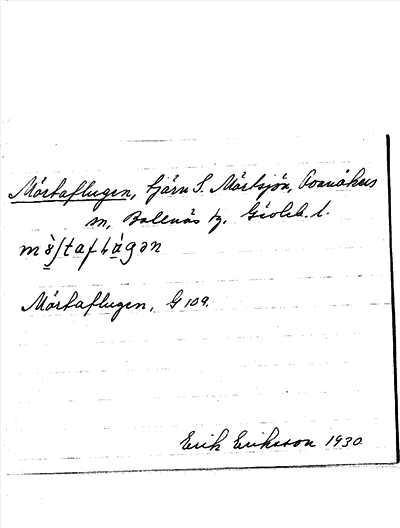 Mörtaflugen, tjärn S. Mörtsjön, Ovanåkers
m, Bollnäs tg, Gävleb. l.
Mörtaflugen, G 109.
Erik Eriksson 1930.